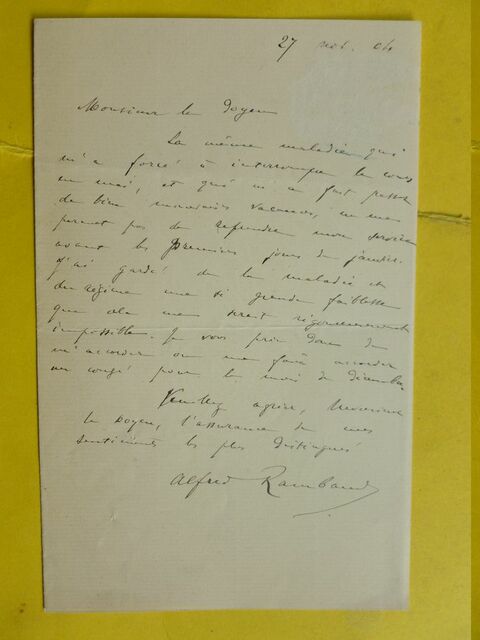 27 nov. 04
Monsieur le Doyen
La même maladie qui
m'a forcé à interrompre le cours
en mai, et qui m'a fait passer
de bien mauvaises vacances, ne me
permet pas de reprendre mon service
avant les premiers jours de janvier.
J'ai gardé de la maladie et
du régime une si grande faiblesse
que cela me serait rigoureusement
impossible. Je vous prie donc de
m'accorder ou me faire accorder
un congé pour le mois de décembre.
Veuillez agréer, Monsieur
le Doyen, l'assurance de mes
sentiments les plus distingués
Alfred Rambaud